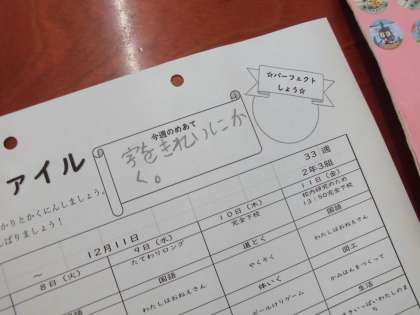 ☆パーフェクト
しょう☆
今週のめあて
字をきれいにか
く。
ァイル
33週
2年3組
かりとかくにんしましょう。
ばりましょう！
～ 12月11日
8日(火)
9日(水)
たてわりロング
10日(木)
完全下校
11日(金)
校内研究のため
13:50完全下校
国語
道とく
国語
わたしはおねえさん
やくそく
わたしはおねえさん
体いく
図工
ボールけりゲーム
かみはんをつくって
生活